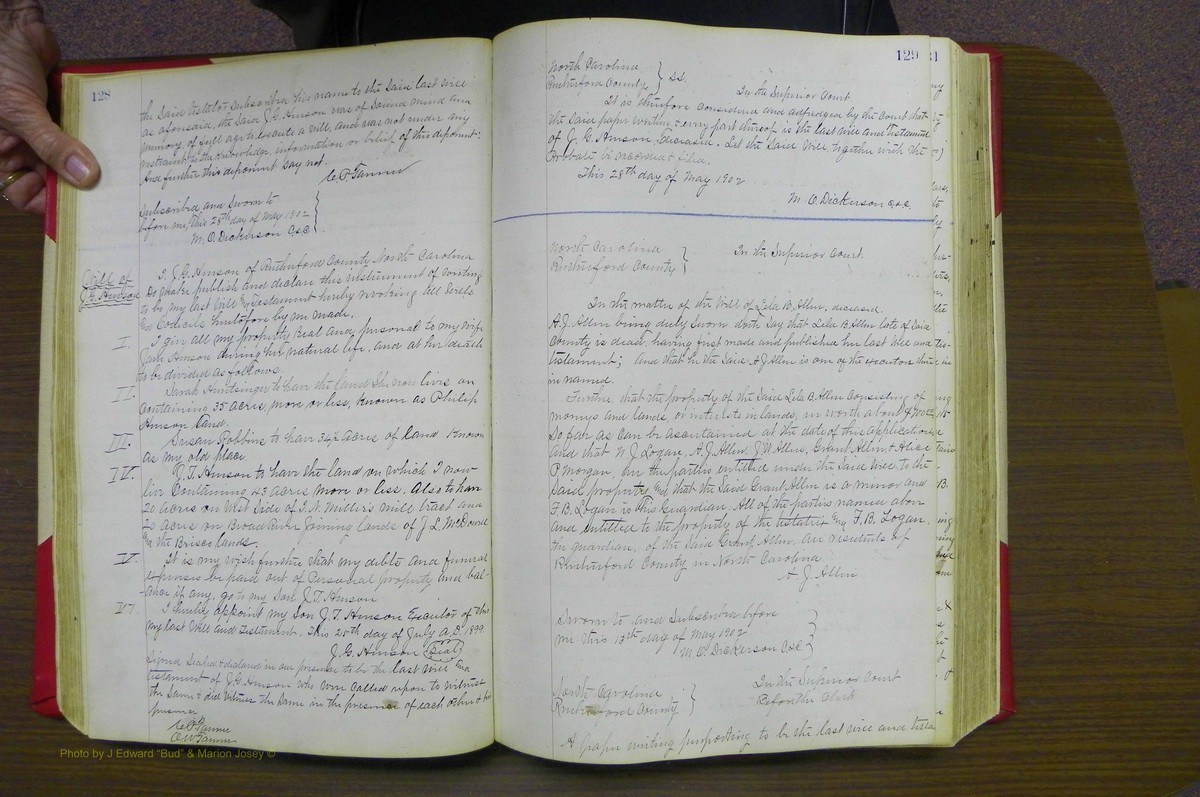 128
the said testator subscribe his name to the said last will
as aforesaid, the said J. G. Hinson was of sound mind and
memory, of full age to execute a will, and was not under any
restraint to the knowledge, information or belief of this deponent:
And further this deponent say not.
C. P. Tanner
Subscribed and sworn to
before me, this 28th day of May 1902
M. O. Dickerson C.S.C.
Will of
J. G. Hinson
I, J. G. Hinson of Rutherford County North Carolina
do make publish and declare this instrument of writing
to be my last Will and Testament hereby revoking all Wills
and Codicils heretofore by me made.
I. I give all my property Real and personal to my wife
Jane Hinson during her natural life, and at her death
to be divided as follows.
II. Sarah Huntsinger to have the land she now lives on
Containing 35 acres, more or less, known as Philip
Hinson Land.
III. Susan Robbins to have 34½ acres of land Known
as my old place.
IV. J. T. Hinson to have the land on which I now
live Containing 43 acres more or less. Also to have
20 acres on West side of J. N. Miller's mill tract and
20 acres on Broad River Joining Lands of J L. McDowell
and the Brisco lands.
V. It is my wish further that my debts and funeral
expenses be paid out of Personal property and bal-
ance if any, go to my Son J. T. Hinson
VI. I hereby appoint my Son J. T. Hinson Executor of this
my last Will and Testament. This 25th day of July A.D. 1899.
J. G. Hinson (Seal)
Signed Sealed & declared in our presence to be the last Will and
testament of J. G. Hinson who were called upon to witness
the same & did witness the same in the presence of each other & his
presence
C. P. Tanner
O. W. Tanner
129
North Carolina
Rutherford County } SS.
In the Superior Court
It is therefore considered and adjudged by the Court that
the said paper writing & every part thereof is the last will and testament
of J. G. Hinson, Deceased. Let the said Will, together with the
Probate be recorded & filed.
This 28th day of May 1902
M. O. Dickerson C.S.C.
North Carolina
Rutherford County }
In the Superior Court.
In the matter of the Will of Lela B. Allen, deceased.
A. J. Allen being duly sworn doth say that Lela B. Allen late of said
County is dead, having first made and published her last Will and
testament; and that he the said A. J. Allen is one of the executors there
in named.
Further, that the property of the said Lela B. Allen consisting of
moneys and lands, or interests in lands, is worth about
so far as can be ascertained at the date of this application
and that W. J. Logan, A. J. Allen, J. W. Allen, Grant Allen & Alice
P Morgan, are the parties entitled under the said Will to the
said property and that the said Grant Allen is a minor and
F. B. Logan is his guardian. All of the parties named above
and entitled to the property of the testatrix and F. B. Logan,
the guardian, of the said Grant Allen, are residents of
Rutherford County in North Carolina
A. J. Allen
Sworn to and Subscribed before
me this 13th day of May 1902
M. O. Dickerson C.S.C.
North Carolina
Rutherford County }
In the Superior Court
Before the Clerk
A paper writing purporting to be the last will and testa
Photo by J Edward "Bud" & Marion Josey ©